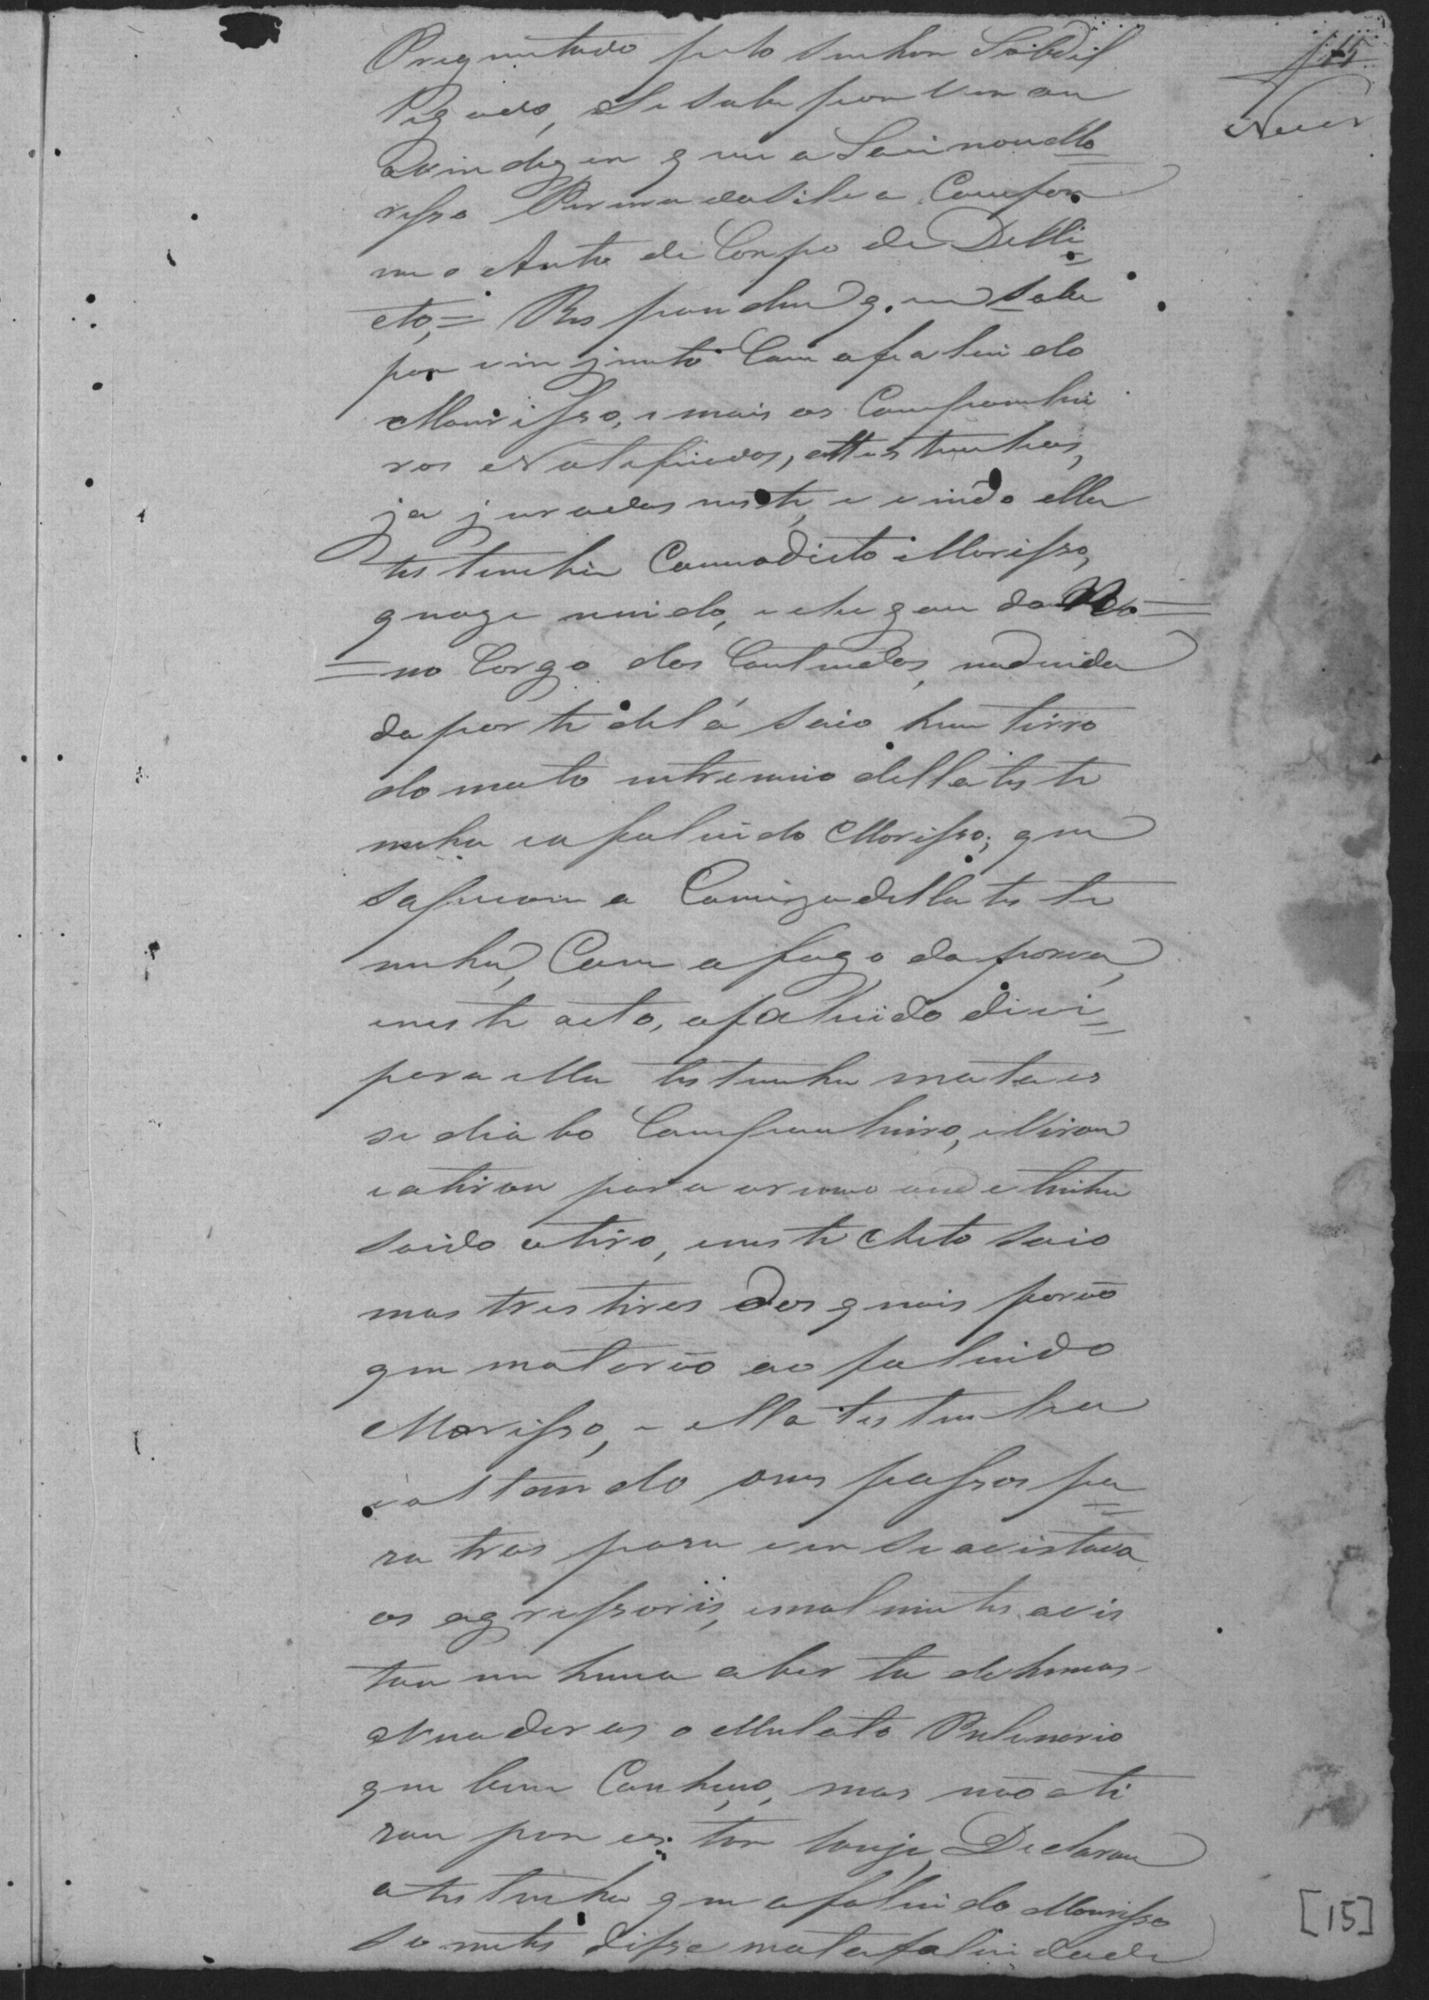 15
Neves
Preguntado pelo Senhor Subdil
legado, Se sabe por ver ou
ouvir dizer quem a Saсinou Mo
risso Pereira da Silva Confor
me o Auto de Corpo de Delli
cto,= Respondeu q. sabe
por vir junto Com o falecido
Morisso, e mais os Companhei
ros Notefficados, e testemunhas,
ja juradas neste, e vindo ella
testemunha Com o dicto Morisso,
quaze unido, e chegou
=no Corgo dos Canudos, na
da parte de lá saio hum tirro
do mato entremeio della teste
munha e o falecido Morisso; que
a Camiza della teste
munha, Com o fogo da porva,
e neste acto, o falecido dice
para ella testemunha mata es
se diabo Companheiro, e Virou
e atirou para o rumo onde tinha
saido o tiro, e neste Acto saio
mas tres tiros dos quais forão
que matarão ao falecido
Morisso, e ella testemunha
voltando uns passos pa=
ra tras para ver se avistava
os agressoris, e malmente avis
tou em huma aberta de humas
Madeiras o Mulato
que bem Conheceo, mas não ati
rou por estar longe, Declarou
a testemunha que o falecido Morisso
somente disse mata
[15]